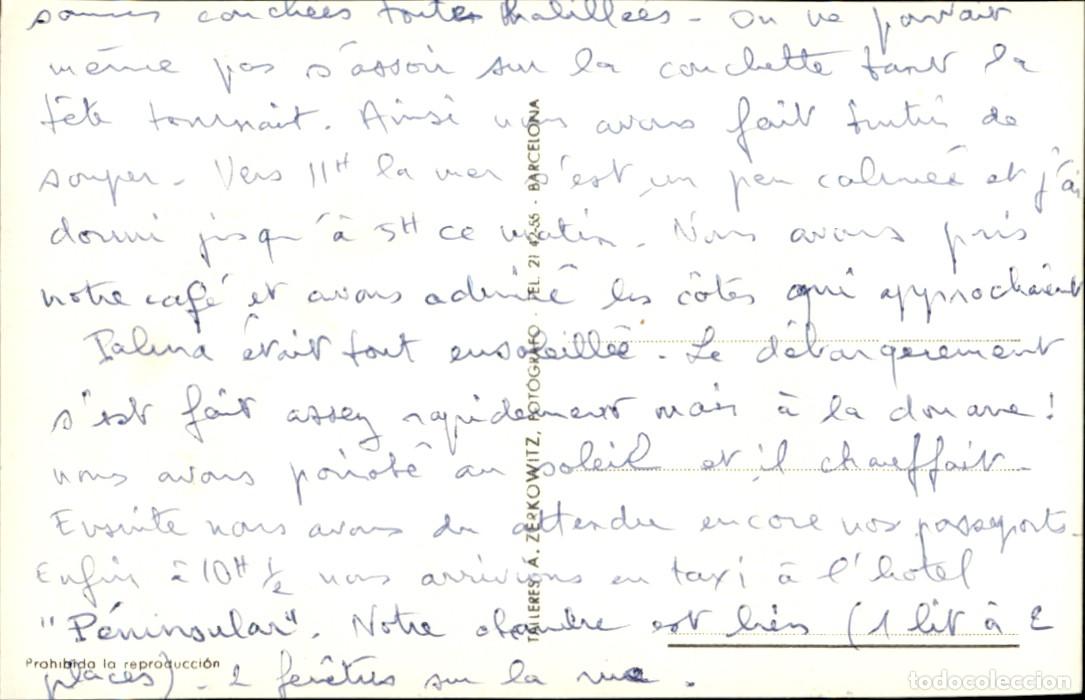 sommes couchées toutes habillées - On ne pouvait
même pas s'assoir sur la couchette tant la
tête tournait. Ainsi nous avons fait tintin de
souper - Vers 11H la mer s'est un peu calmée et j'ai
dormi jusqu'à 5H ce matin. Nous avons pris
notre café et avons admiré les côtes qui approchaient
Palma était tout ensoleillée - Le débarquement
s'est fait assez rapidement mais à la douane !
nous avons poiroté au soleil et il chauffait -
Ensuite nous avons du attendre encore nos passeports -
Enfin à 10H 1/2 nous arrivions en taxi à l'hotel
"Péninsular". Notre chambre est bien (1 lit à 2
places) - 2 fenêtres sur la rue.
Prohibida la reproducción
TALLERES, A. ZERKOWITZ, FOTÓGRAFO - TEL. 21 42-55 - BARCELONA
todocoleccion